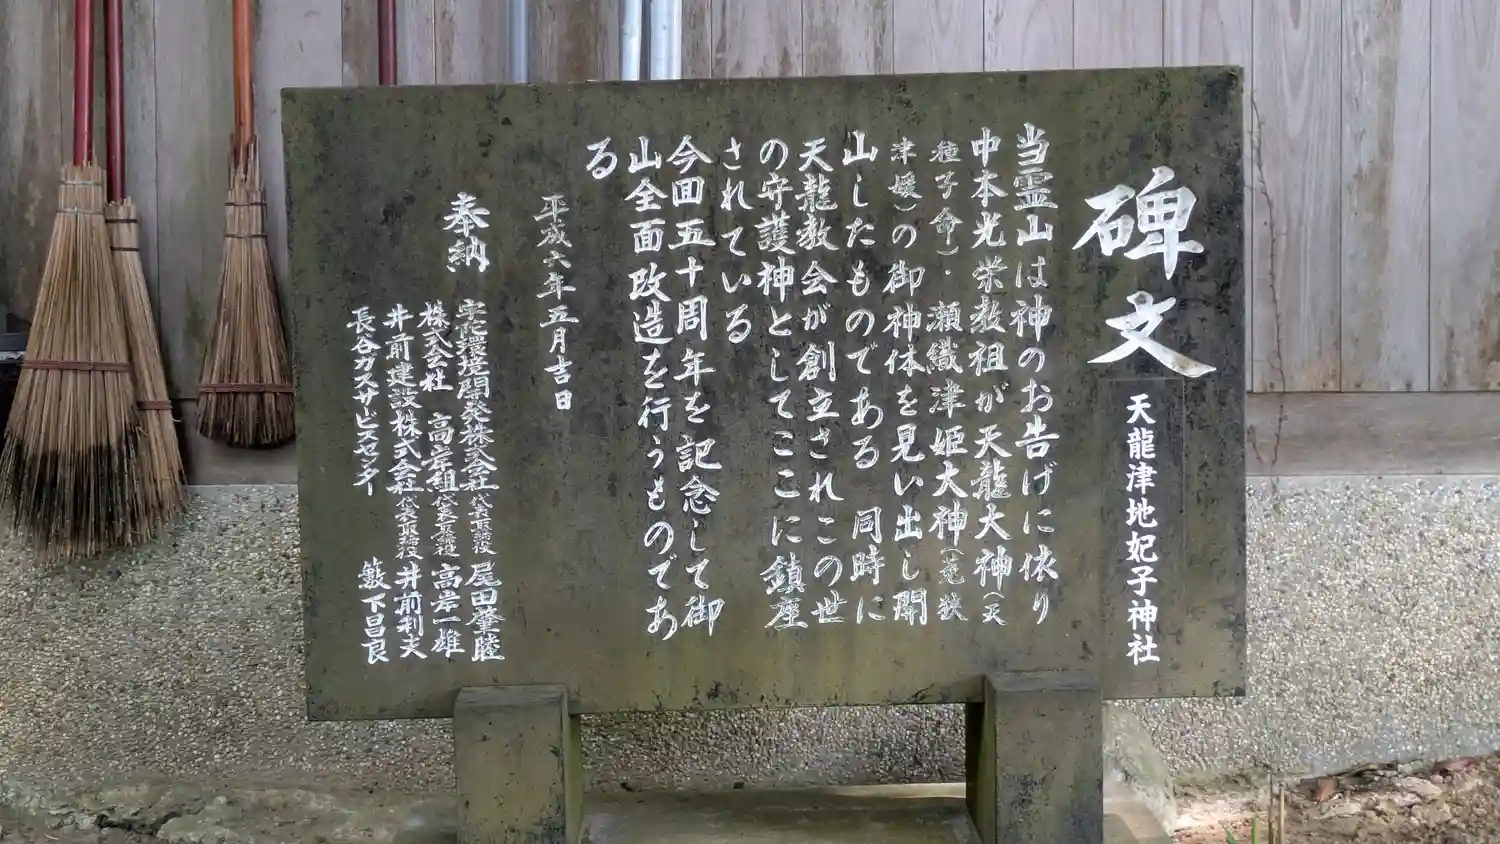 碑文
天龍津地妃子神社
当霊山は神のお告げに依り
中本光栄教祖が天龍大神(天
種子命)・瀬織津姫大神(竜狭
津媛)の御神体を見い出し開
山したものである 同時に
天龍教会が創立されこの世
の守護神としてここに鎮座
されている
今回五十周年を記念して御
山全面改造を行うものであ
る
平成六年五月吉日
奉納
環境開発株式会社 代表取締役 尾田肇睦
株式会社 高岸組 代表取締役 高岸一雄
井前建設株式会社 代表取締役 井前利夫
長谷ガスサービスセンター 籔下昌良